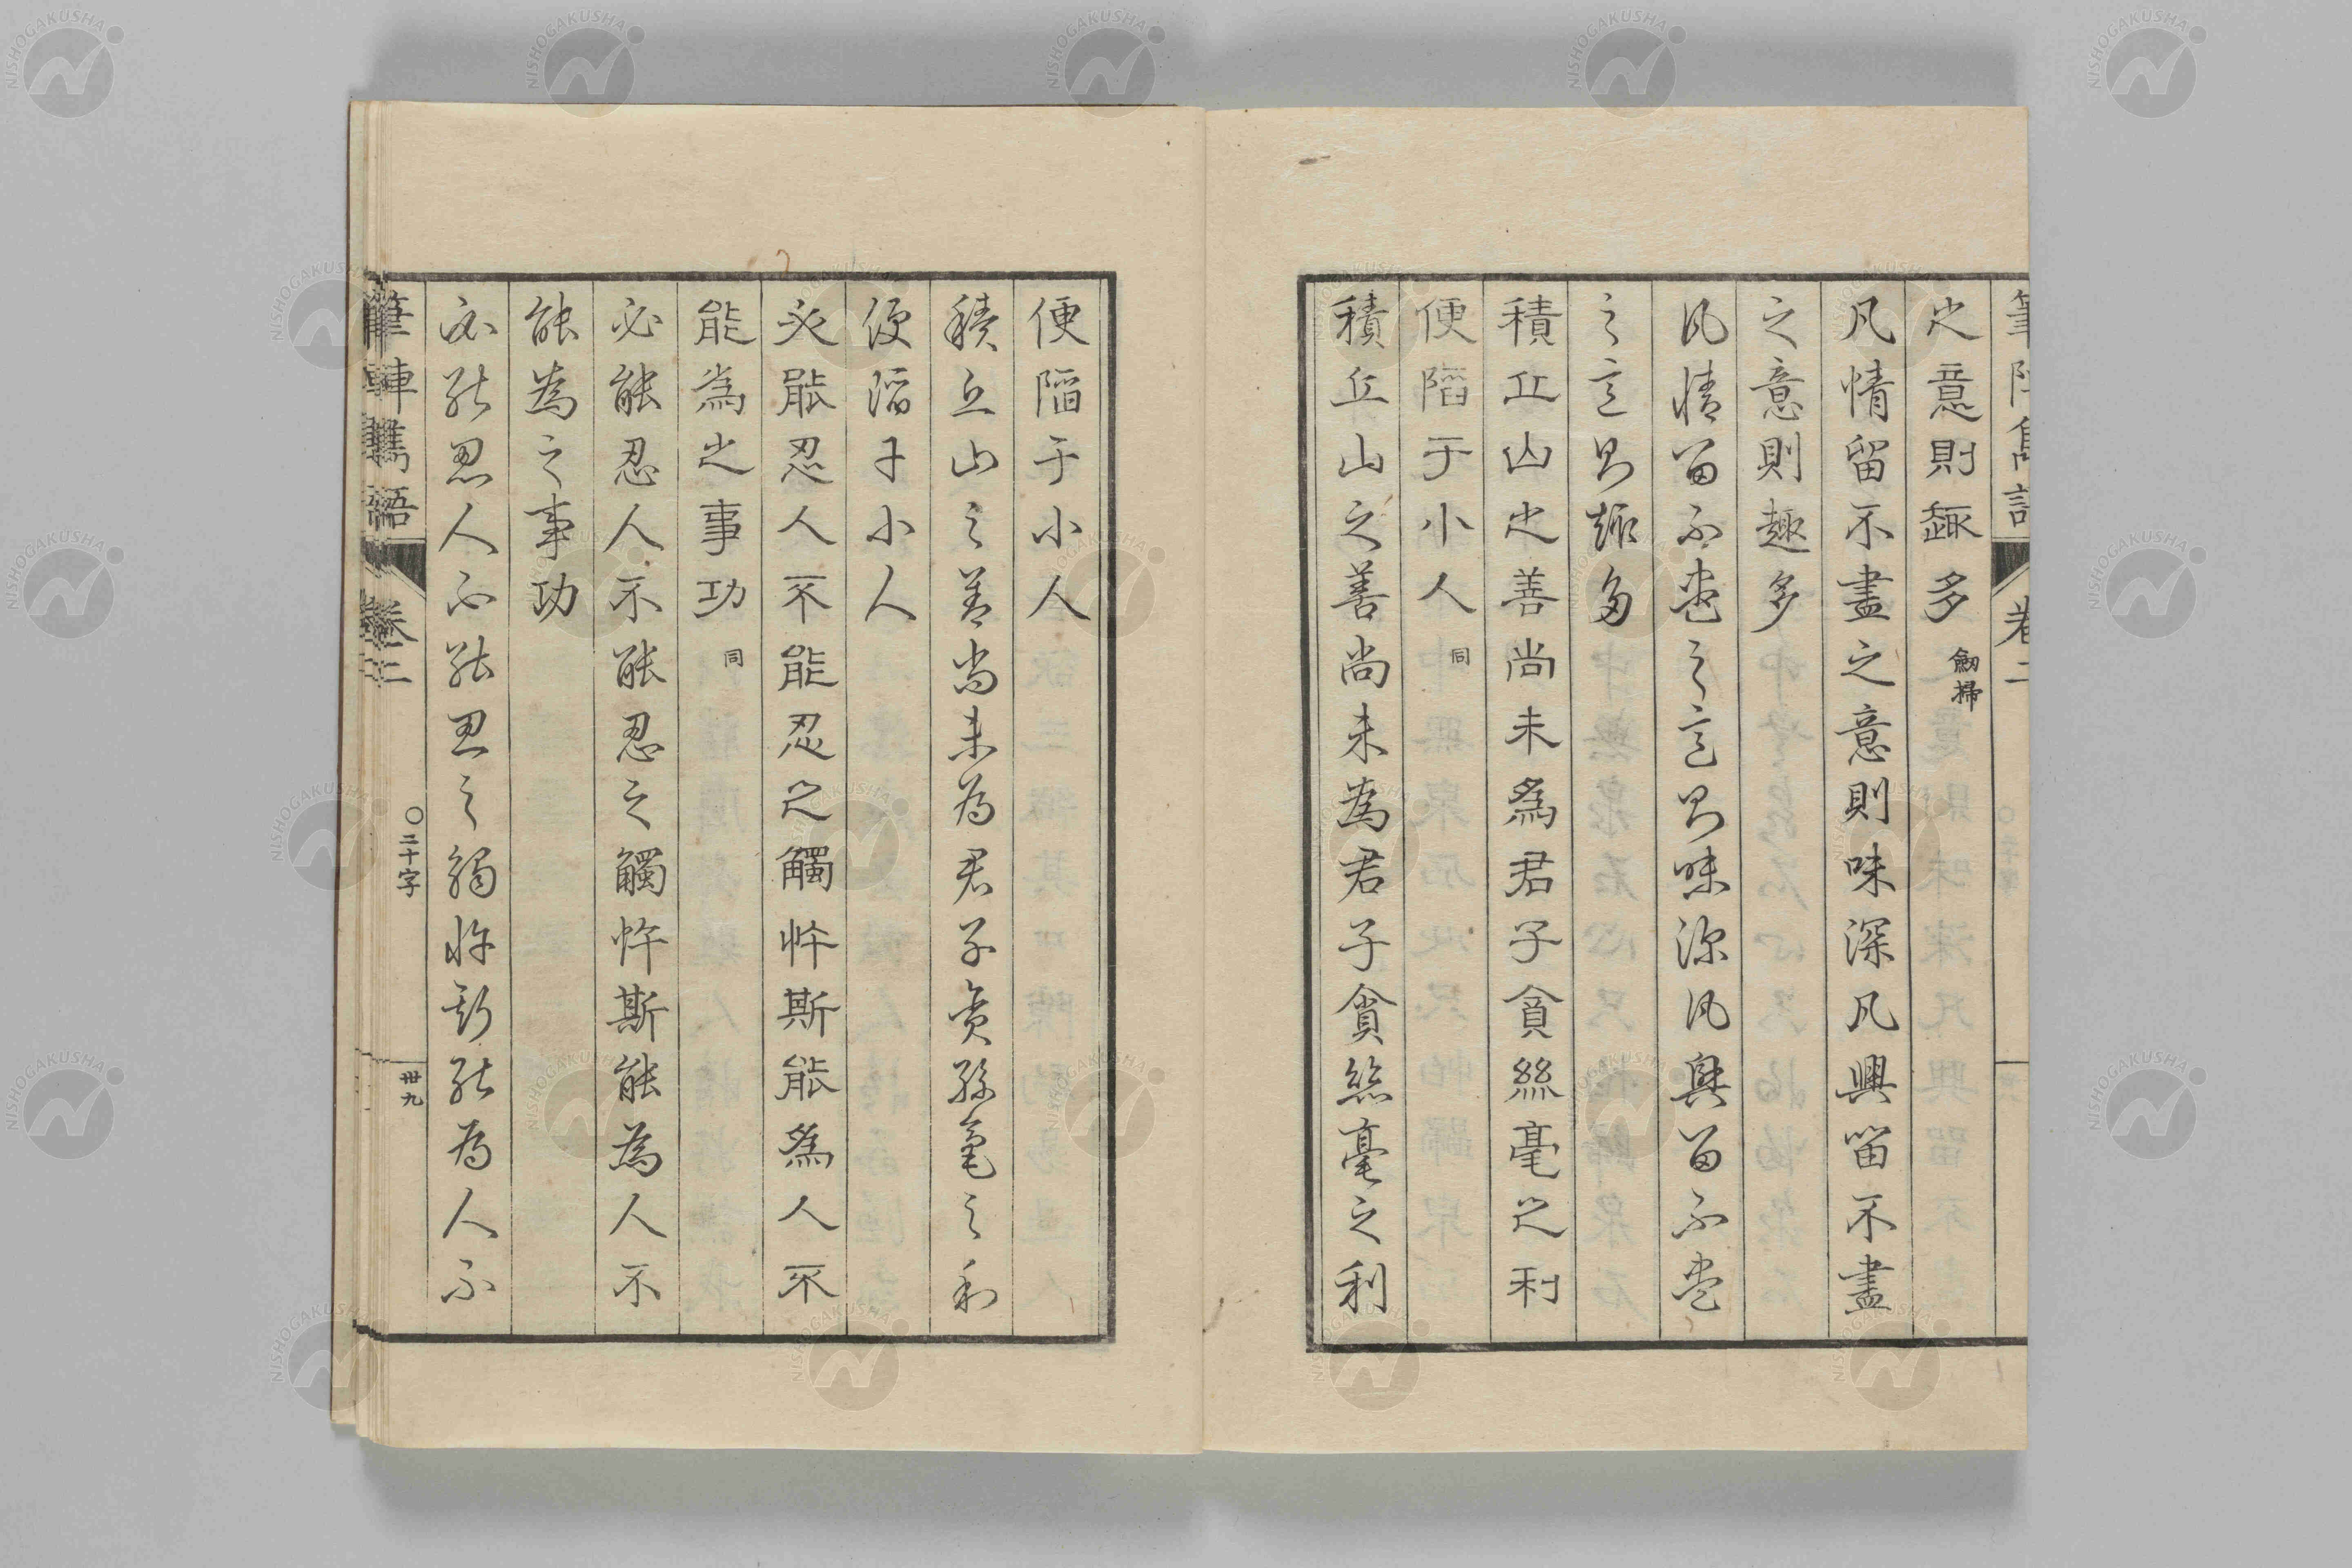 筆陣雋語 卷二
之意則趣多 劍掃
凡情留不盡之意則味深凡興留不盡
之意則趣多
凡情留不盡之意則味深凡興留不盡
之意則趣多
積丘山之善尚未為君子貪絲毫之利
便陷于小人 同
積丘山之善尚未為君子貪絲毫之利
便陷于小人
積丘山之善尚未為君子貪絲毫之利
便陷于小人
必能忍人不能忍之觸忤斯能為人不
能為之事功 同
必能忍人不能忍之觸忤斯能為人不
能為之事功
必能忍人不能忍之觸忤斯能為人不
筆陣雋語 卷二 〇二十字 卅九
NISHOGAKUSHA